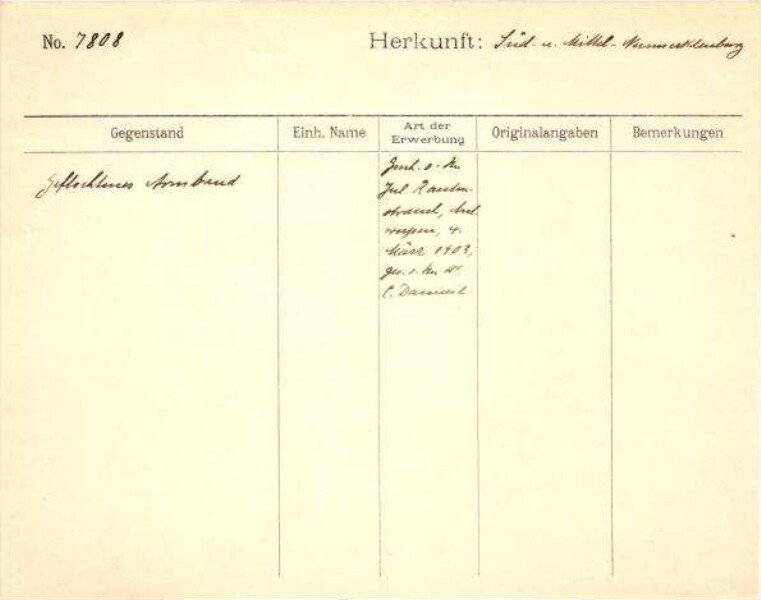 No. 7808
Herkunft: Süd- u. Mittel-Neumecklenburg
Gegenstand
Einh. Name
Art der Erwerbung
Originalangaben
Bemerkungen
Geflochtenes Armband
Gesch. v. Hn
Jul Rauten-
strauch, Ant
werpen, 4.
März 1903,
ges. v. Hn Dr
C. Danneil